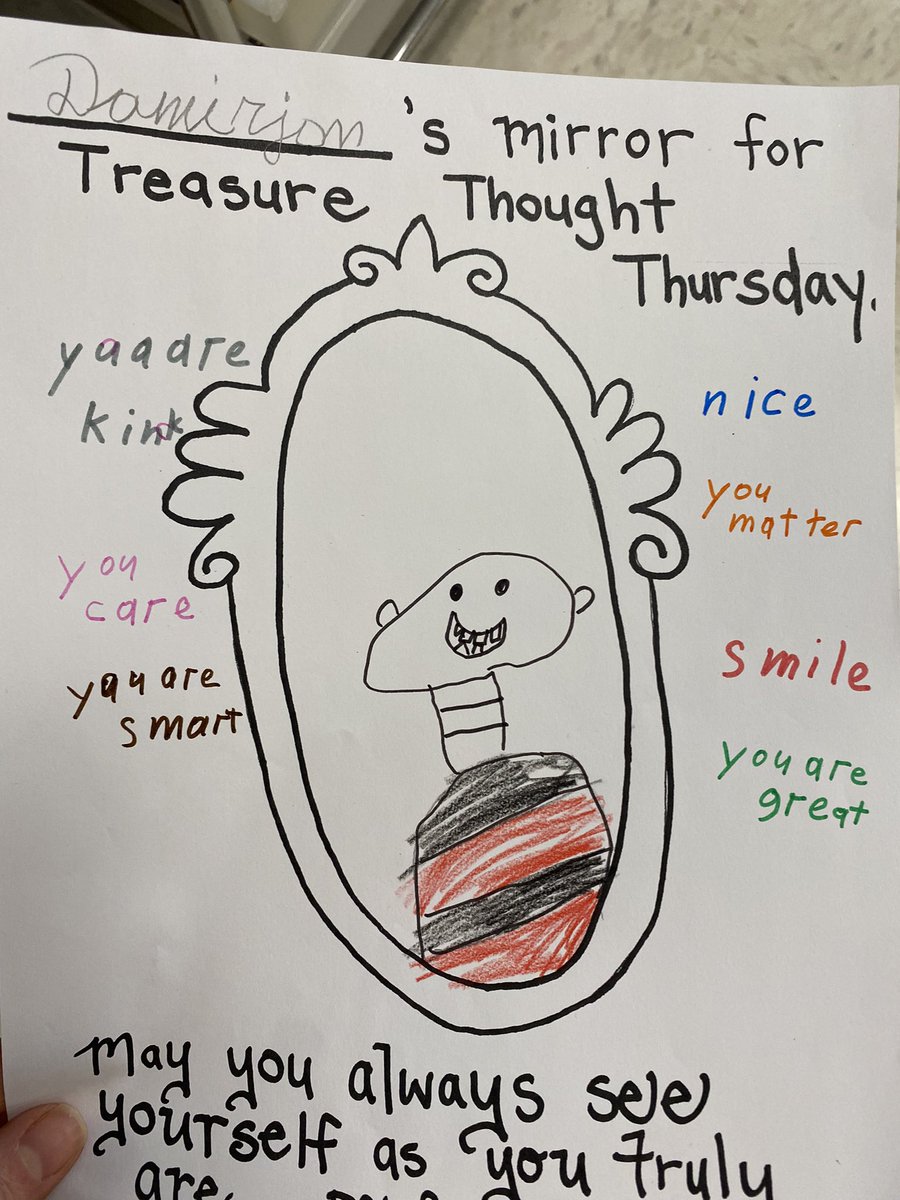 Damirjon's mirror for
Treasure Thought
Thursday.
yaaare
kink
you
care
yau are
smart
nice
you
matter
smile
you are
great
May you always see
yourself as you truly
are.